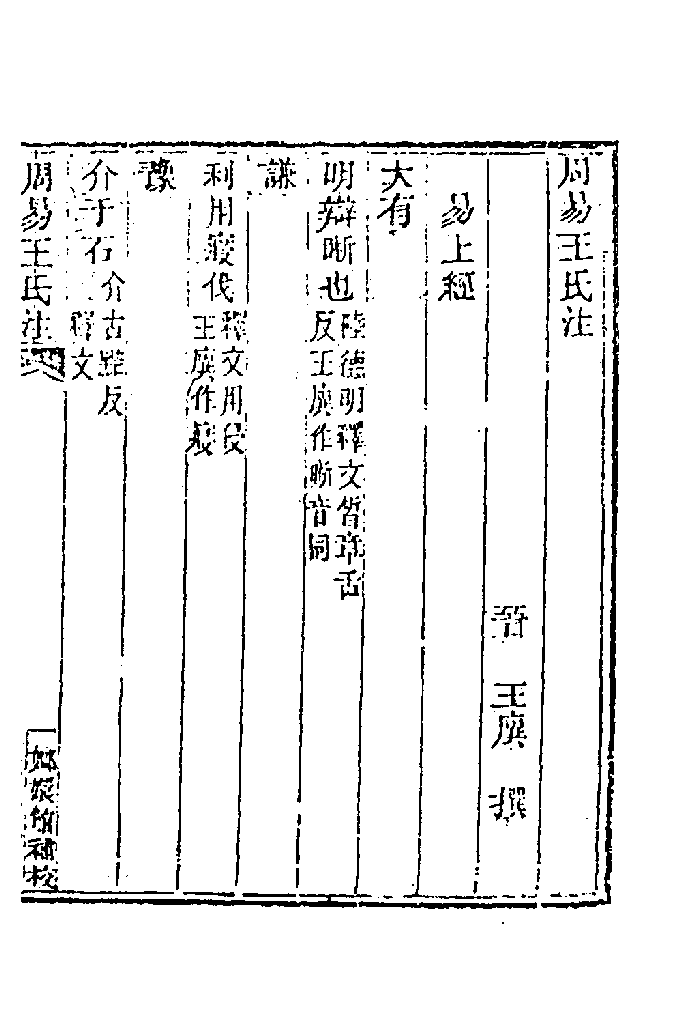 周易王氏注
晉　王廙　撰
易上經
大有
明辯晣也陸德明釋文晢章舌
反王廙作晣音同
謙
利用寑伐釋文用侵
王廙作寑
豫
介于石介古黠反
釋文
周易王氏注
嫏嬛館補校